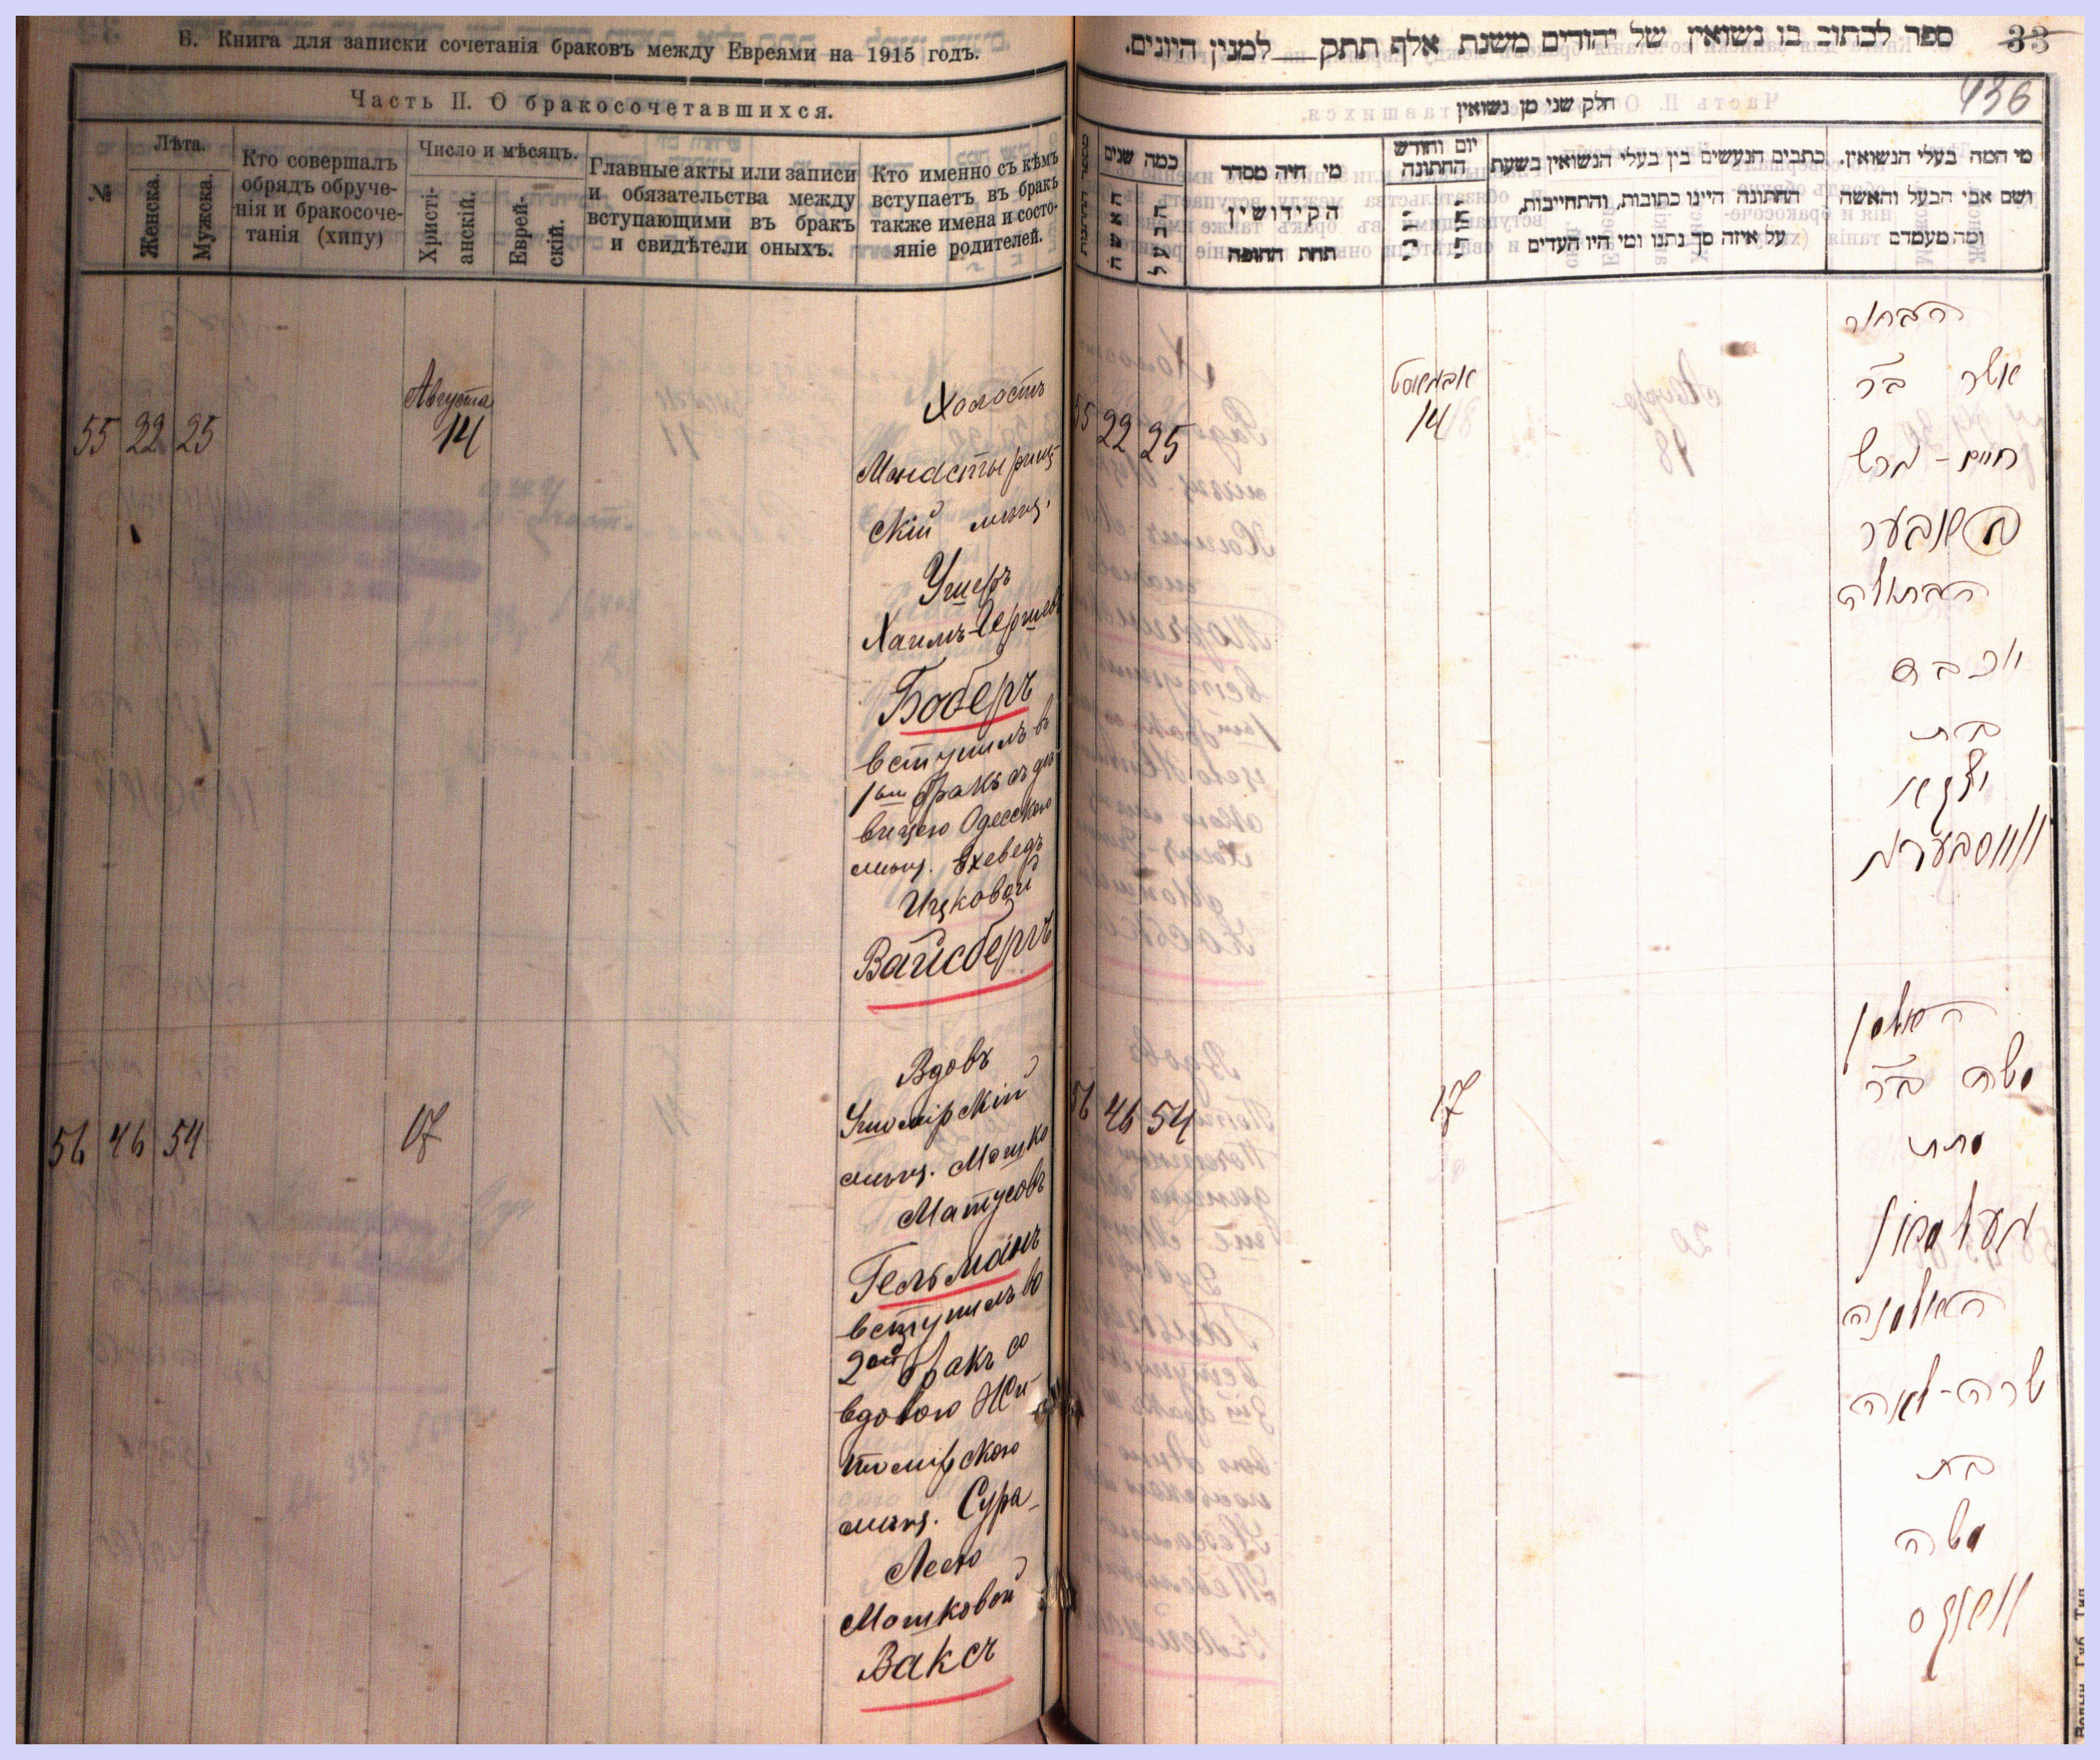 Б. Книга для записки сочетанія браковъ между Евреями на 1915 годъ.
Часть II. О бракосочетавшихся.
№
Лѣта.
Женска.
Мужска.
Кто совершалъ
обрядъ обруче-
нія и бракосоче-
танія (хипу)
Число и мѣсяцъ.
Христі-
анскій.
Еврей-
скій.
Главные акты или записи
и обязательства между
вступающими въ бракъ
и свидѣтели оныхъ.
Кто именно съ кѣмъ
вступаетъ въ бракъ
также имена и состо-
яніе родителей.
55 22 25
Августа
14
Холостъ
Монастырищ-
скій мѣщ.
Ушеръ
Хаимъ-Гершевъ
Боберъ
вступилъ въ
1ый бракъ съ дѣ-
вицею Одесскою
мѣщ. Ехеведъ
Ицковой
Вайсбергъ
56 46 54
17
Вдовъ
Ушомірскій
мѣщ. Мошко
Матусовъ
Гельманъ
вступилъ во
2ой бракъ со
вдовою Жи-
томірскою
мѣщ. Сура-
Леею
Мошковой
Ваксъ
ספר לכתוב בו נשואין של יהודים משנת אלף תתק למנין היונים.
33
436
חלק שני מן נשואין
כמה שנים
האשה
הבעל
מי היה מסדר
הקידושין
תחת החופה
יום וחודש
החתונה
כתבים הנעשים בין בעלי הנשואין בשעת
החתונה היינו כתובות, והתחייבות,
על איזה סך נתנו ומי היו העדים
מי המה בעלי הנשואין.
ושם אבי הבעל והאשה
ומה מעמדם
55 22 25
אבגאוסט
14
הבחור
אשר ב״ר
חיים-הרש
באבער
הבתולה
יוכבד
בת
יצחק
ווייסבערג
56 46 54
17
האלמן
משה ב״ר
מתת
העלמאן
האלמנה
שרה-לאה
בת
משה
וואקס